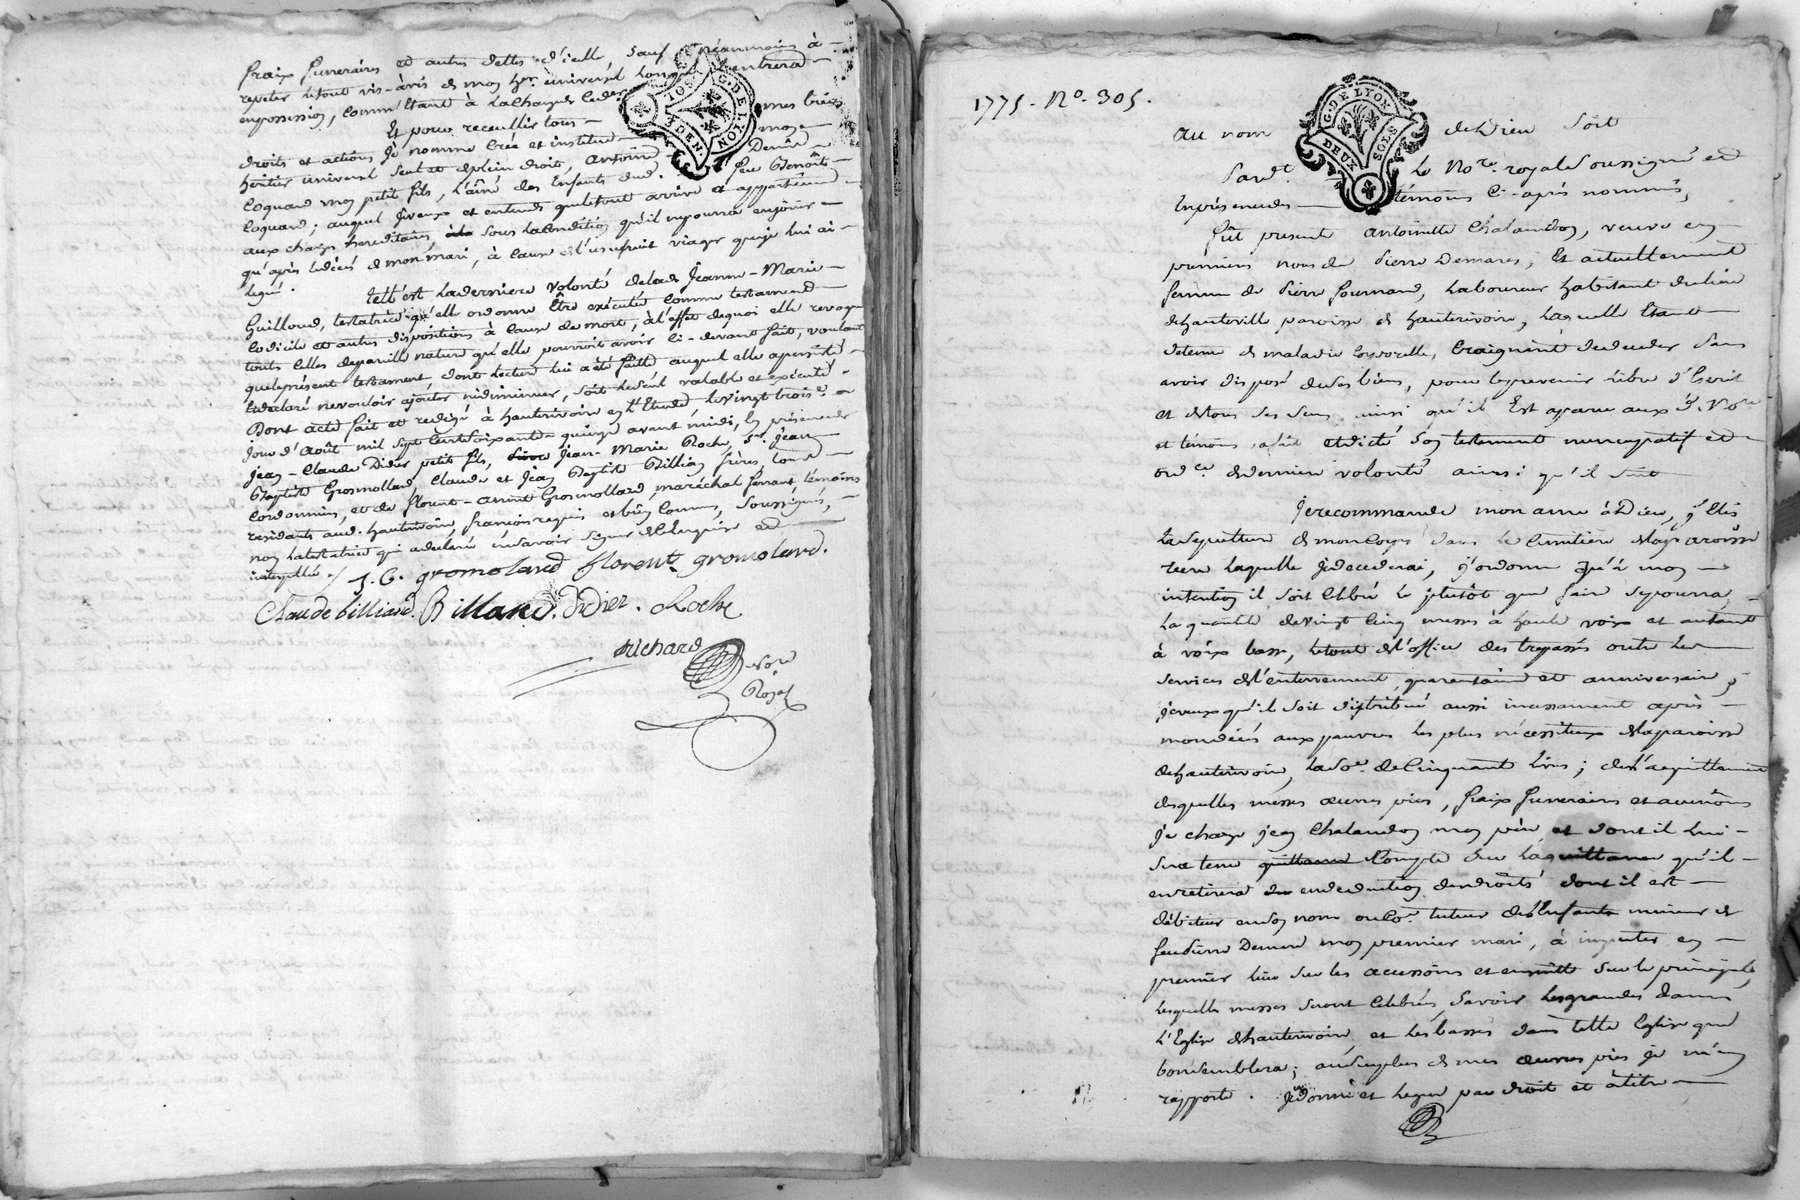 fraix funeraires et autres dettes d'icelle, sauf néanmoins à
repeter letout vis-à-vis de mon her. universel lorsqu'il entrera
enpossession, comm'étant à lacharge de
Et pour receullir tous mes biens
droits et actions je nomme crée et institue mon
heritier universel seul et deplein droit, antoine Demure
Coquard mon petit fils, l'aîné des Enfants dud. feu Benoît
Coquard; auquel jeveux et entends queletout arrive et appartienne
aux charges hereditaires, sous lacondition qu'il nepourra enjouir
qu'après ledécès de mon mari, à cause del'usufruit viager queje lui ai
légué.
Tell'est laderniere volonté delade Jeanne-Marie
Guilloud, testatrice qu'elle ordonne être exécutée comme testament
codicile et autres dispositions à cause de mort, à l'effet dequoi elle revoque
touts celles depareille nature qu'elle pourroit avoir ci-devant fait, voulant
queleprésent testament, dont lecture lui a été faitte auquel elle apersisté
etdeclaré nevouloir ajouter nidiminuer, soit leseul valable et exécuté.
Dont acte fait et redigé à hauterivoire en l'Etude levingt trois.e
jour d'août mil sept centsoixante-quinze avant midi, En présence de
jean-Claude Didier petit fils, jean-Marie Roche, Sr. jean
Baptiste Grosmollard, Claude et jean Baptiste Billiard frères tous
cordonniers, et de florent-annet Grosmollard, maréchal ferrant, témoins
residants aud. hauterivoire, françois requis et bien connus, soussignés,
non latestatrice qui adeclaré nesavoir signer del'enquise et
interpellée.
J. B. gromolard florent gromolard.
Claude billiard. Billard. Didier. Roche
Richard
Nore
Royal
1775. No. 305.
G. DE LYON
DEUX SOLS
au nom de Dieu soit
Pard.t Le No.re royal soussigné et
enprésencedes témoins ci-après nommés,
fût presente antoinette Chalandon, veuve en
premieres noces de Pierre Demares, Et actuellement
femme de Pierre fournand, laboureur habitant dulieu
dehauteville paroisse de hauterivoire, laquelle étant
detenue de maladie corporelle, craignant dedeceder sans
avoir disposé deses biens, pour leprevenir libre d'Esprit
et detous ses sens, ainsi qu'il Est aparu aux d. No.re
et témoins, afait etdicté son testament nuncupatif et
ord.ce dederniere volonté ainsi qu'il suit
Je recommande mon ame àDieu, j'Elis
lasepulture de moncorps dans le cimetiere delaparoisse
rière laquelle jedecederai, j'ordonne qu'à mon
intention il soit célébré le plutôt que faire sepourra,
la quantité devingt cinq messes à haute voix et autant
à voix basse, letout del'office des trepassés outre les
services del'enterrement, quarantaine et anniversaire;
jeveux qu'il soit distribué aussi incessamment après
mondécès aux pauvres les plus nécessiteux delaparoisse
dehauterivoire, laso.e decinquante livres; del'acquittement
desquelles messes œuvres pies, fraix funeraires et aumônes
je charge jean Chalandon mon père, et dont il lui
sera tenu quittance compte sur la quittance qu'il
enretirera endeduction desdroits dont il est
débiteur enson nom ouco.e tuteur desEnfants mineurs de
feuPierre Demare mon premier mari, à imputer en
premier lieu sur les accessoires et ensuitte sur le principale,
lesquelles messes seront célébrées, savoir lesgrandes dans
l'Eglise dehauterivoire, et les basses dans telle Eglise que
bonsemblera; ausurplus de mes œuvres pies je m'en
rapporte. Je donne et legue par droit et àtitre